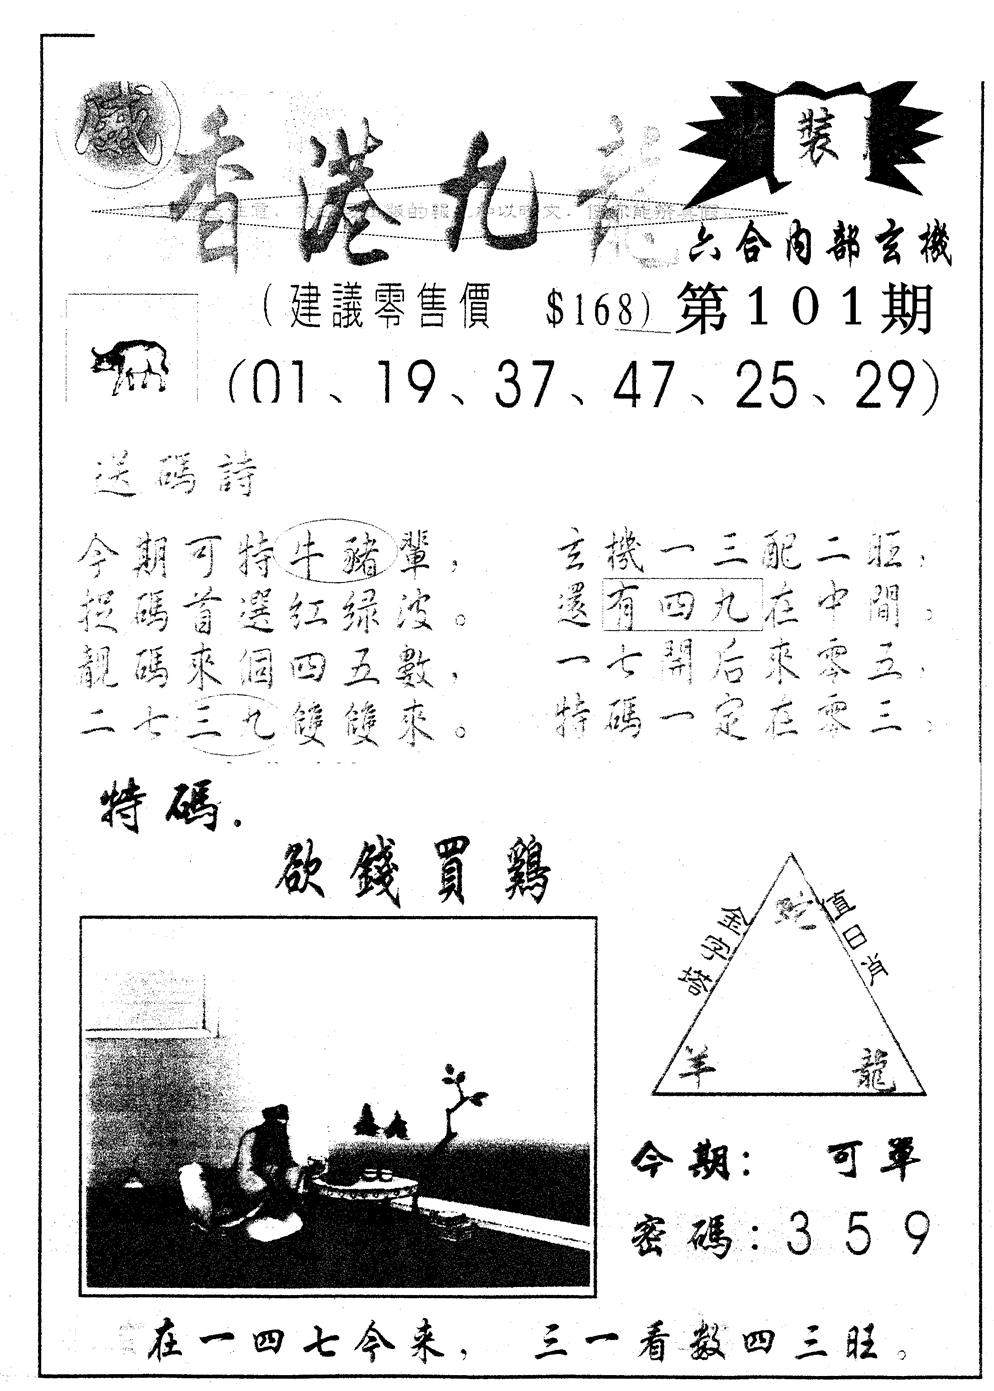 香港九龍
裝
六合内部玄機
(建議零售價 $168)
第101期
(01、19、37、47、25、29)
送碼詩
今期可特牛豬輩，
捉碼首選红绿波。
靚碼來個四五數，
二七三九雙雙來。
玄機一三配二旺，
還有四九在中間。
一七開后來零五，
特碼一定在零三。
特碼.
欲錢買鷄
金字塔
值日肖
蛇
羊
龍
今期： 可單
密碼：359
在一四七今来， 三一看数四三旺。